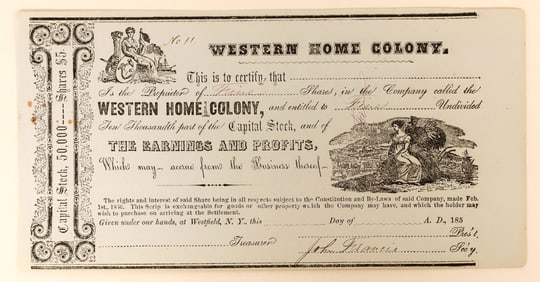 No 11
WESTERN HOME COLONY.
This is to certify, that
Is the Proprietor of Shares, in the Company called the
WESTERN HOME COLONY, and entitled to Undivided
Ten Thousandth part of the Capital Stock, and of
THE EARNINGS AND PROFITS,
Which may accrue from the Business thereof.
The rights and interest of said Share being in all respects subject to the Constitution and By-Laws of said Company, made Feb.
1st, 1856. This Scrip is exchangeable for goods or other property which the Company may have, and which the holder may
wish to purchase on arriving at the Settlement.
Given under our hands, at Westfield, N. Y., this Day of A. D., 185
Pres't.
Treasurer John Francis Sec'y.
Capital Stock, 50,000----Shares $5